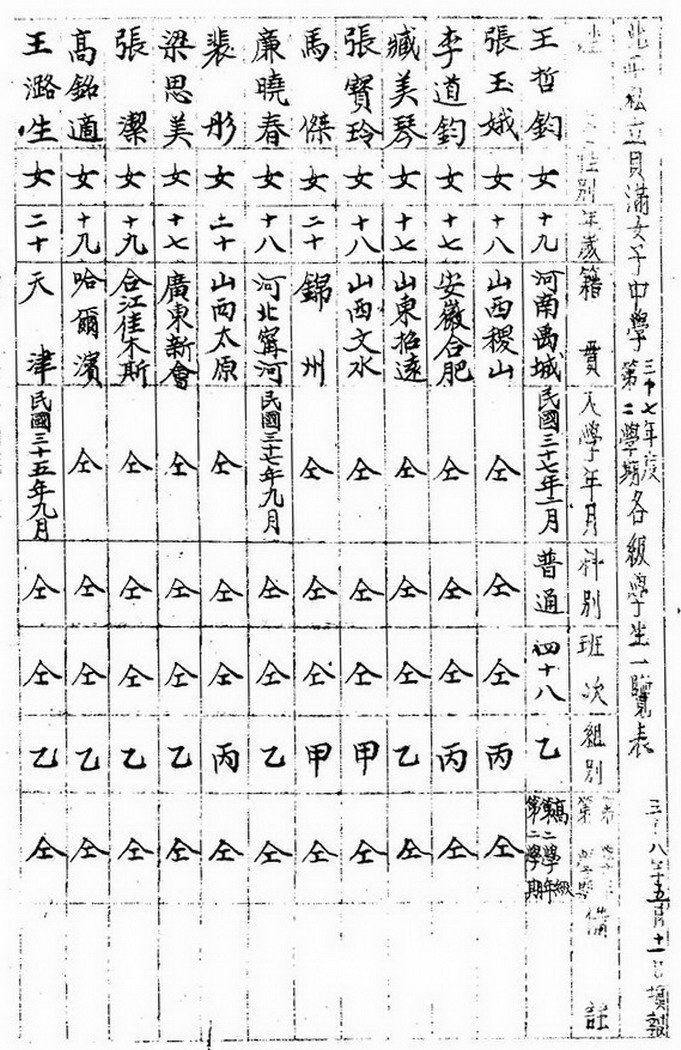 北平私立貝滿女子中學三十七年度第二學期各級學生一覽表
三十八年五月十一日填報
姓 性別 年歲 籍貫 入學年月 科別 班次 組別 備註
王哲鈞 女 十九 河南禹城 民國三十七年二月 普通 四十八 乙 高第二學年級第二學期
張玉娥 女 十八 山西稷山 仝 仝 仝 丙 仝
李道鈞 女 十七 安徽合肥 仝 仝 仝 丙 仝
臧美琴 女 十七 山東招遠 仝 仝 仝 乙 仝
張寶玲 女 十八 山西文水 仝 仝 仝 甲 仝
馬傑 女 二十 錦州 仝 仝 仝 甲 仝
廉曉春 女 十八 河北甯河 民國三十七年九月 仝 仝 乙 仝
裴彤 女 二十 山西太原 仝 仝 仝 丙 仝
梁思美 女 十七 廣東新會 仝 仝 仝 乙 仝
張潔 女 十九 合江佳木斯 仝 仝 仝 乙 仝
高銘適 女 十九 哈爾濱 仝 仝 仝 乙 仝
王潞生 女 二十 天津 民國三十五年九月 仝 仝 乙 仝